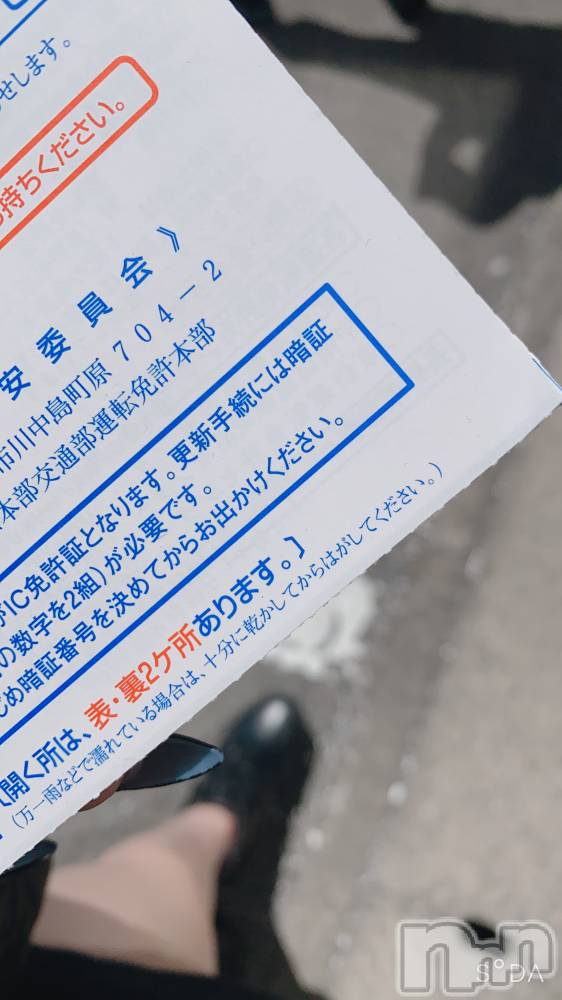 せします。
持ちください。
安委員会》
市川中島町原704-2
本部交通部運転免許本部
がIC免許証となります。更新手続には暗証
の数字を2組)が必要です。
じめ暗証番号を決めてからお出かけください。
開く所は、表・裏2ケ所あります。】
(万一雨などで濡れている場合は、十分に乾かしてからはがしてください。)
nn
SODA